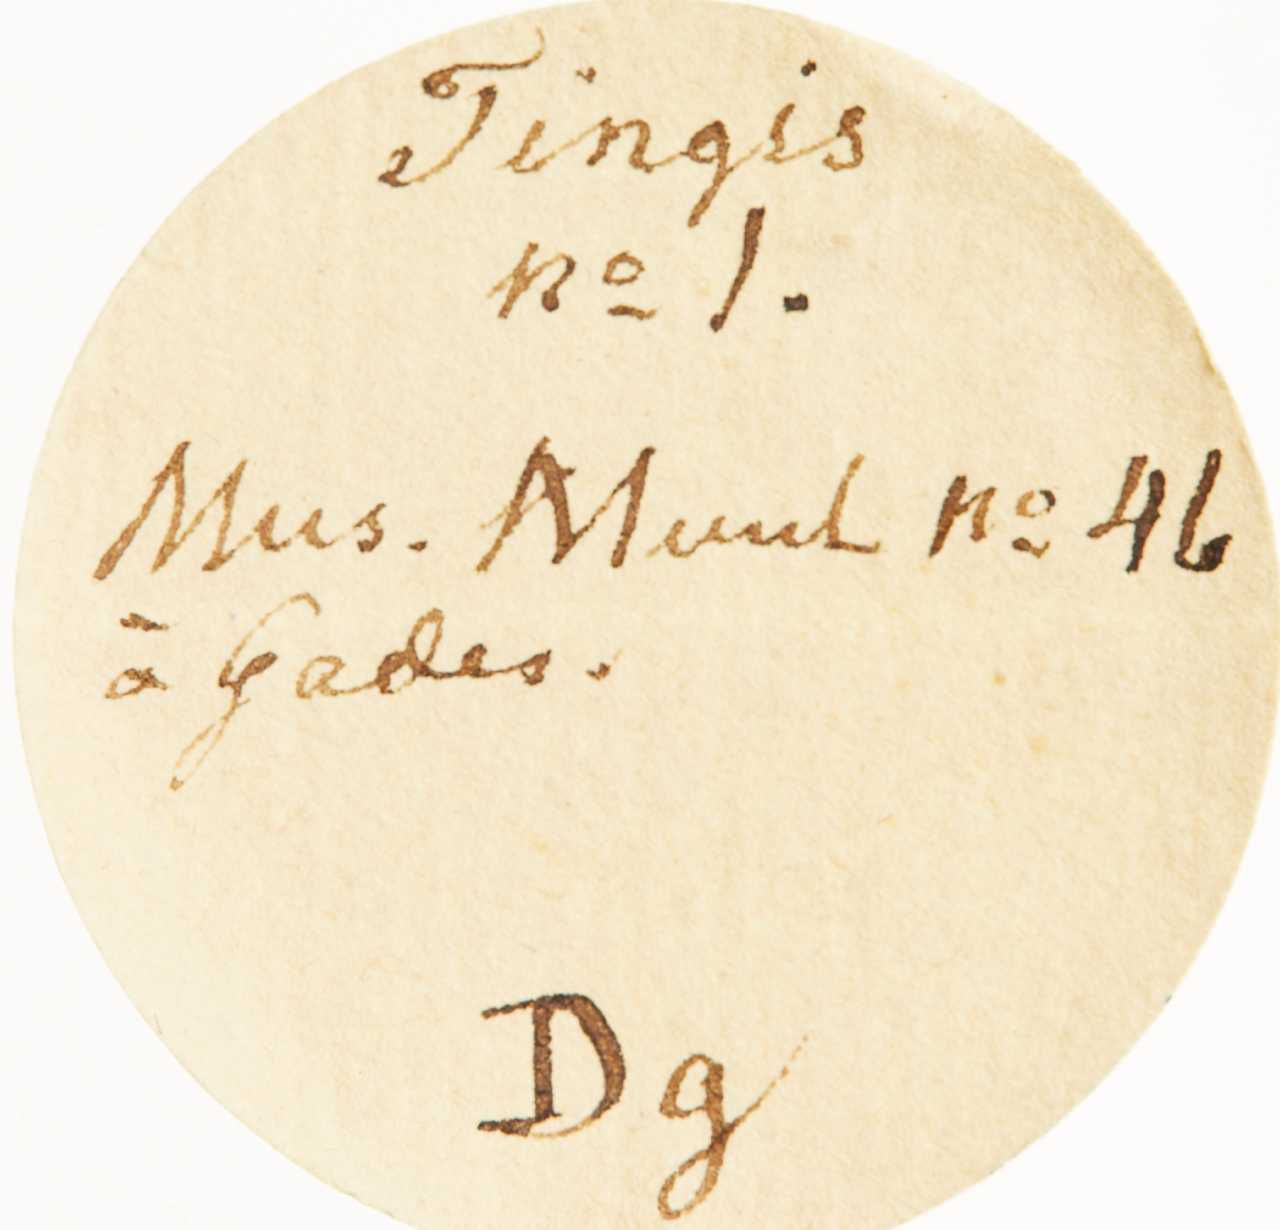 Tingis
nº 1.
Mus. Munt nº 46
à Gades.
Dg